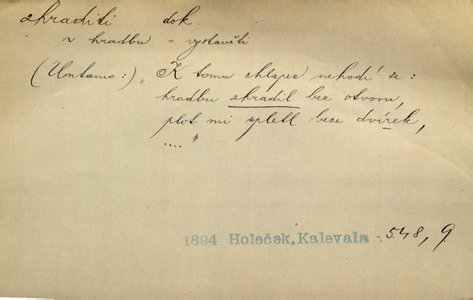 zhraditi dok.
v hradbu = vystavěti
(Untamo:) „K tomu chlapec nehodí se:
hradbu zhradil bez otvoru,
plot mi spletl beze dvírek,
.... "
1894 Holeček, Kalevala 548, 9.